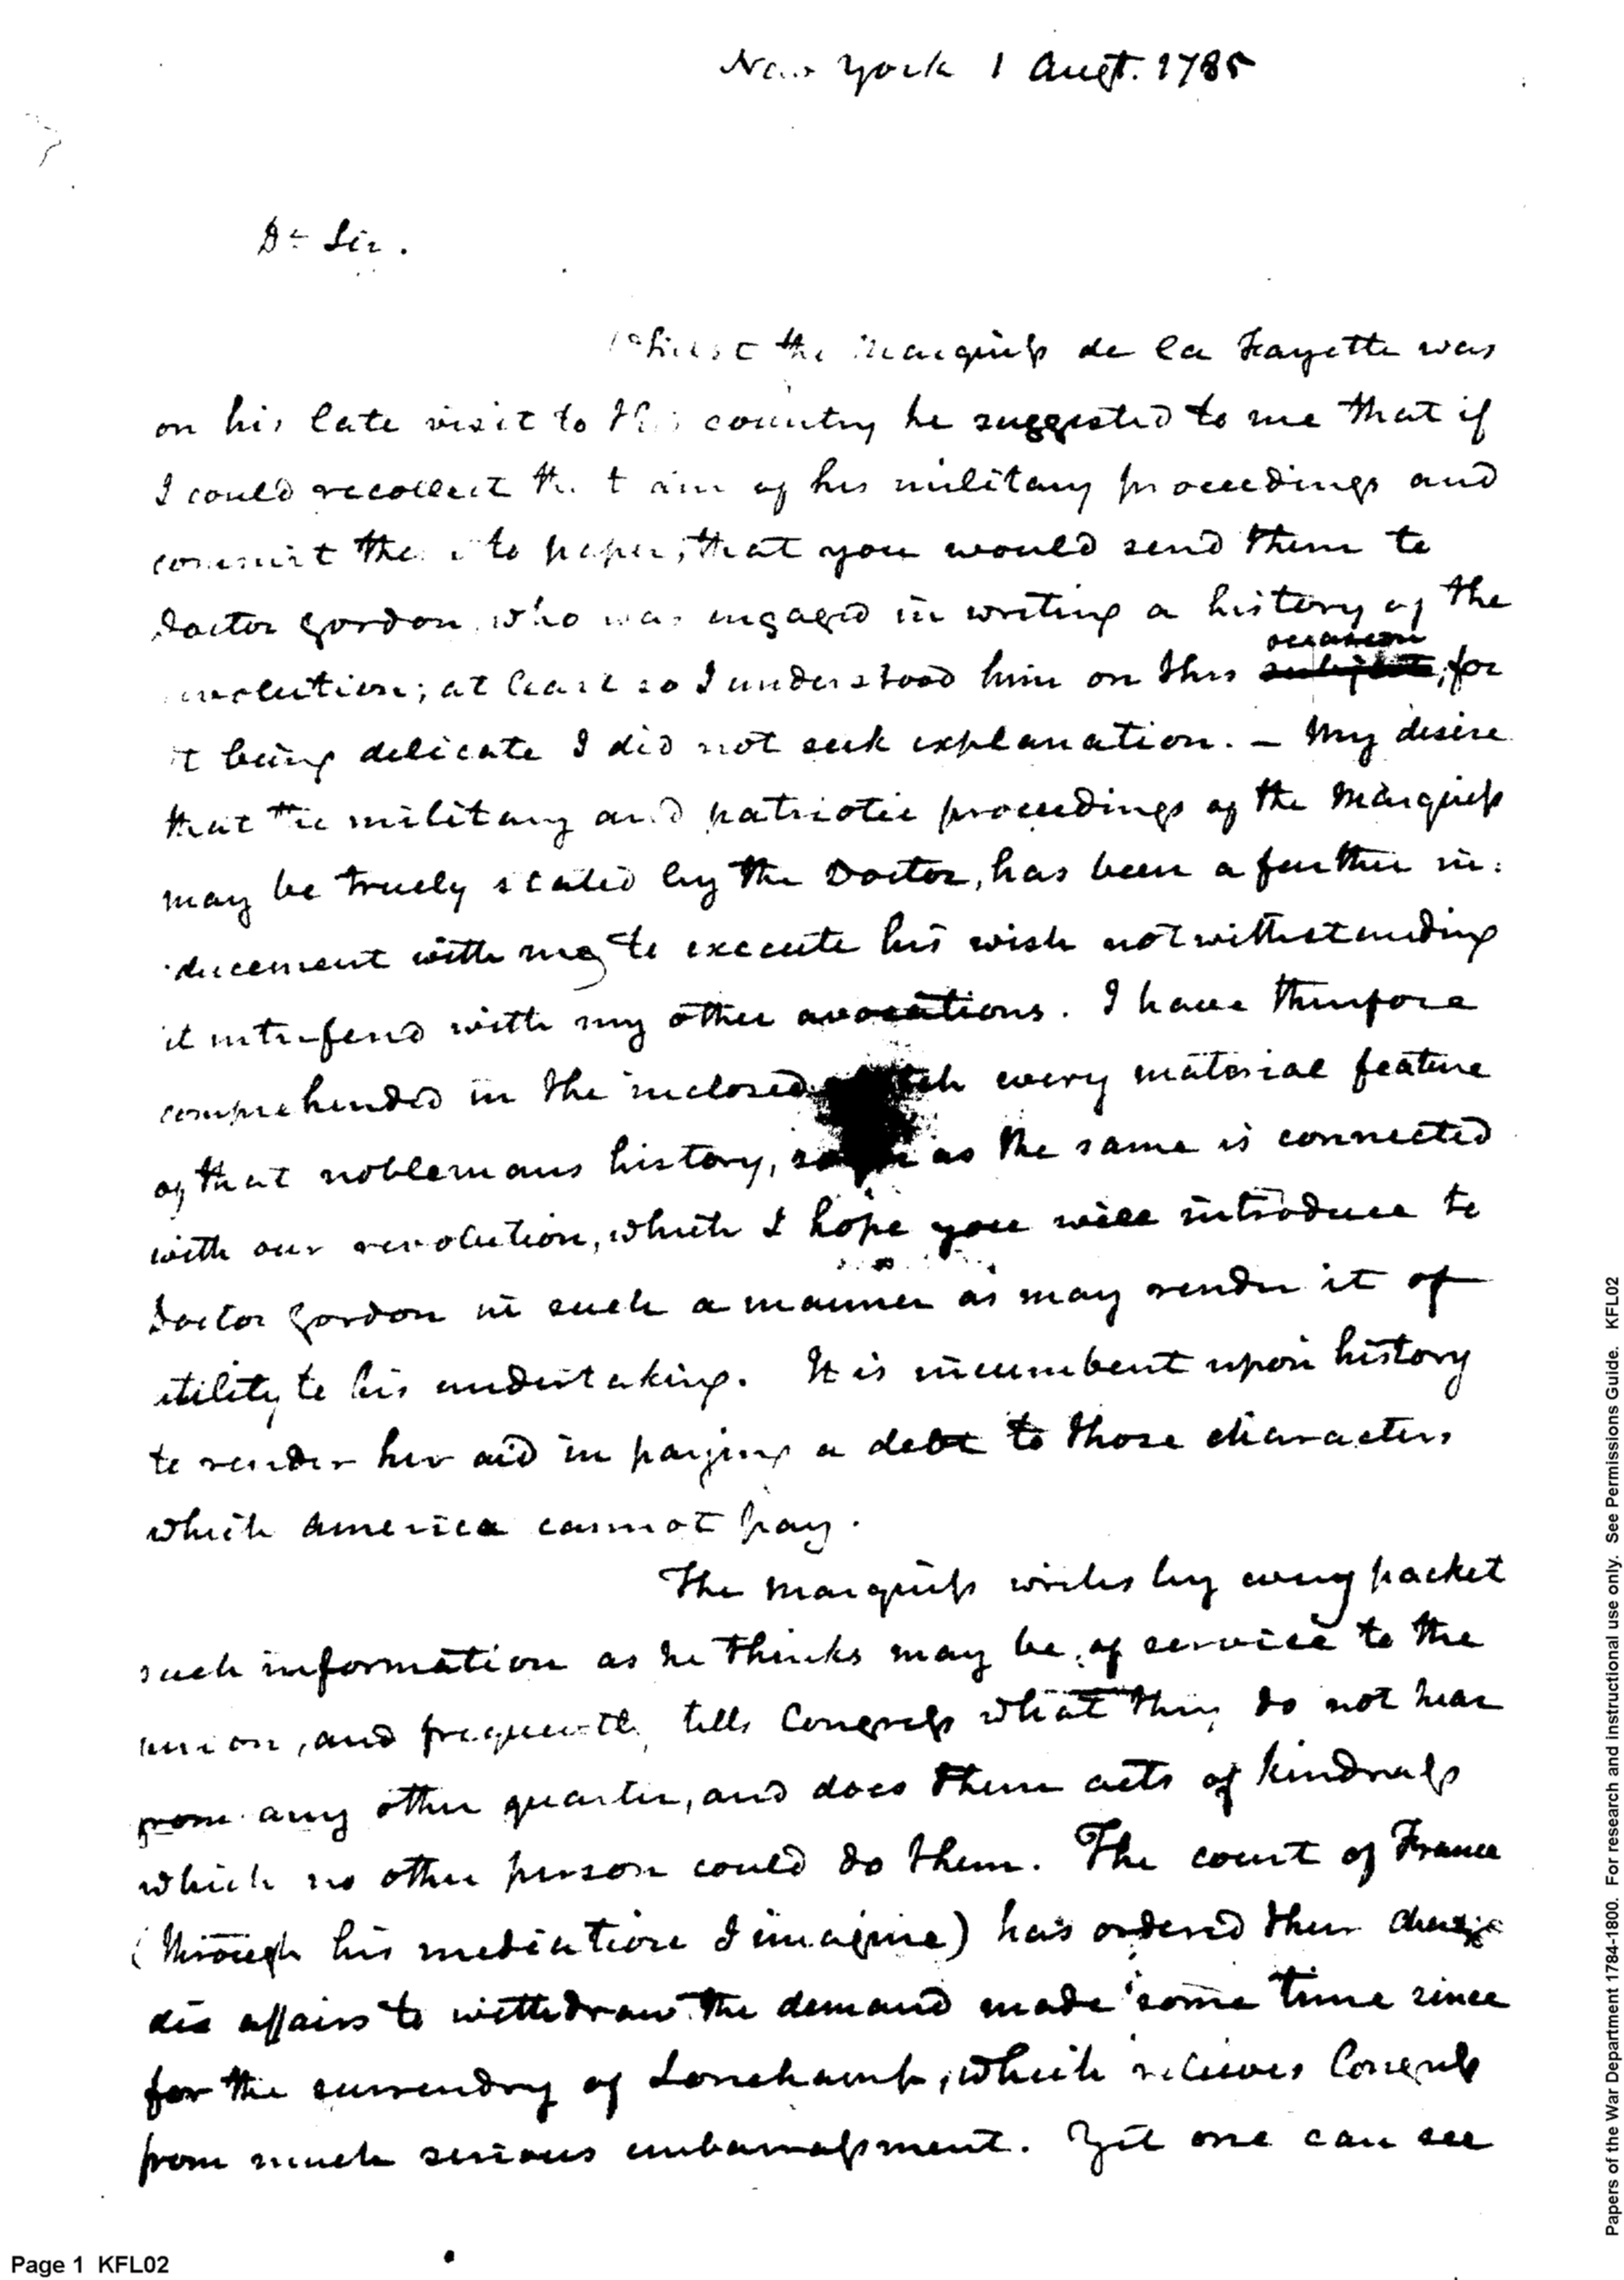 New York 1 Augt. 1785
Dr Sir.
Whilst the Marquiss de la Fayette was
on his late visit to this country he suggested to me that if
I could recollect the of his military proceedings and
commit them to paper, that you would send them to
Doctor Gordon, who was engaged in writing a history of the
revolution; at least so I understood him on this occasion subject; for
it being delicate I did not seek explanation. – My desire
that the military and patriotic proceedings of the Marquiss
may be truely stated by the Doctor, has been a further in:
ducement with me to execute his wish notwithstanding
it interfered with my other avocations. I have therefore
comprehended in the inclosed sketch every material feature
of that noblemans history, so far as the same is connected
with our revolution, which I hope you will introduce to
Doctor Gordon in such a manner as may render it of
utility to his undertaking. It is incumbent upon history
to render her aid in paying a debt to those characters
which America cannot pay.
The Marquiss writes by every packet
such information as he thinks may be of service to the
union, and frequently tells Congress what they do not hear
from any other quarter, and does them acts of kindness
which no other person could do them. The court of France
(through his mediation I imagine) has ordered their charge
des affairs to withdraw the demand made some time since
for the surrendry of Lonchamp, which relieves Congress
from much serious embarrassment. Yet one can see
Page 1 KFL02
Papers of the War Department 1784-1800. For research and instructional use only. See Permissions Guide. KFL02